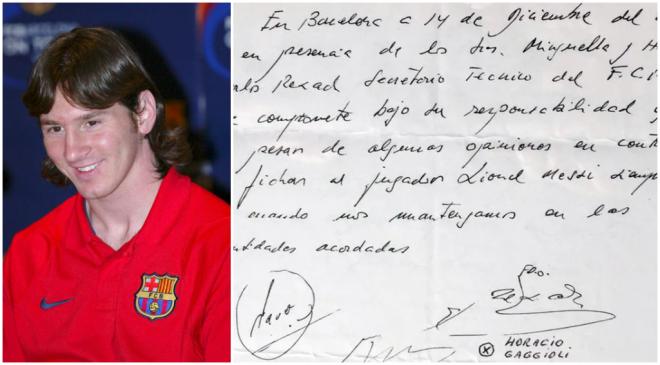 En Barcelona a 14 de Diciembre del
en presencia de los Srs. Minguella y H
Rexad Secretorio Tecnico del F.C.
compromete bajo su responsabilidad y
pesar de algunas opiniones en cont
fichar al jugador Lionel Messi siemp
cuando nos mantengamos en las
ntidades acordadas
Fdo.
HORACIO
GAGGIOLI
FCB